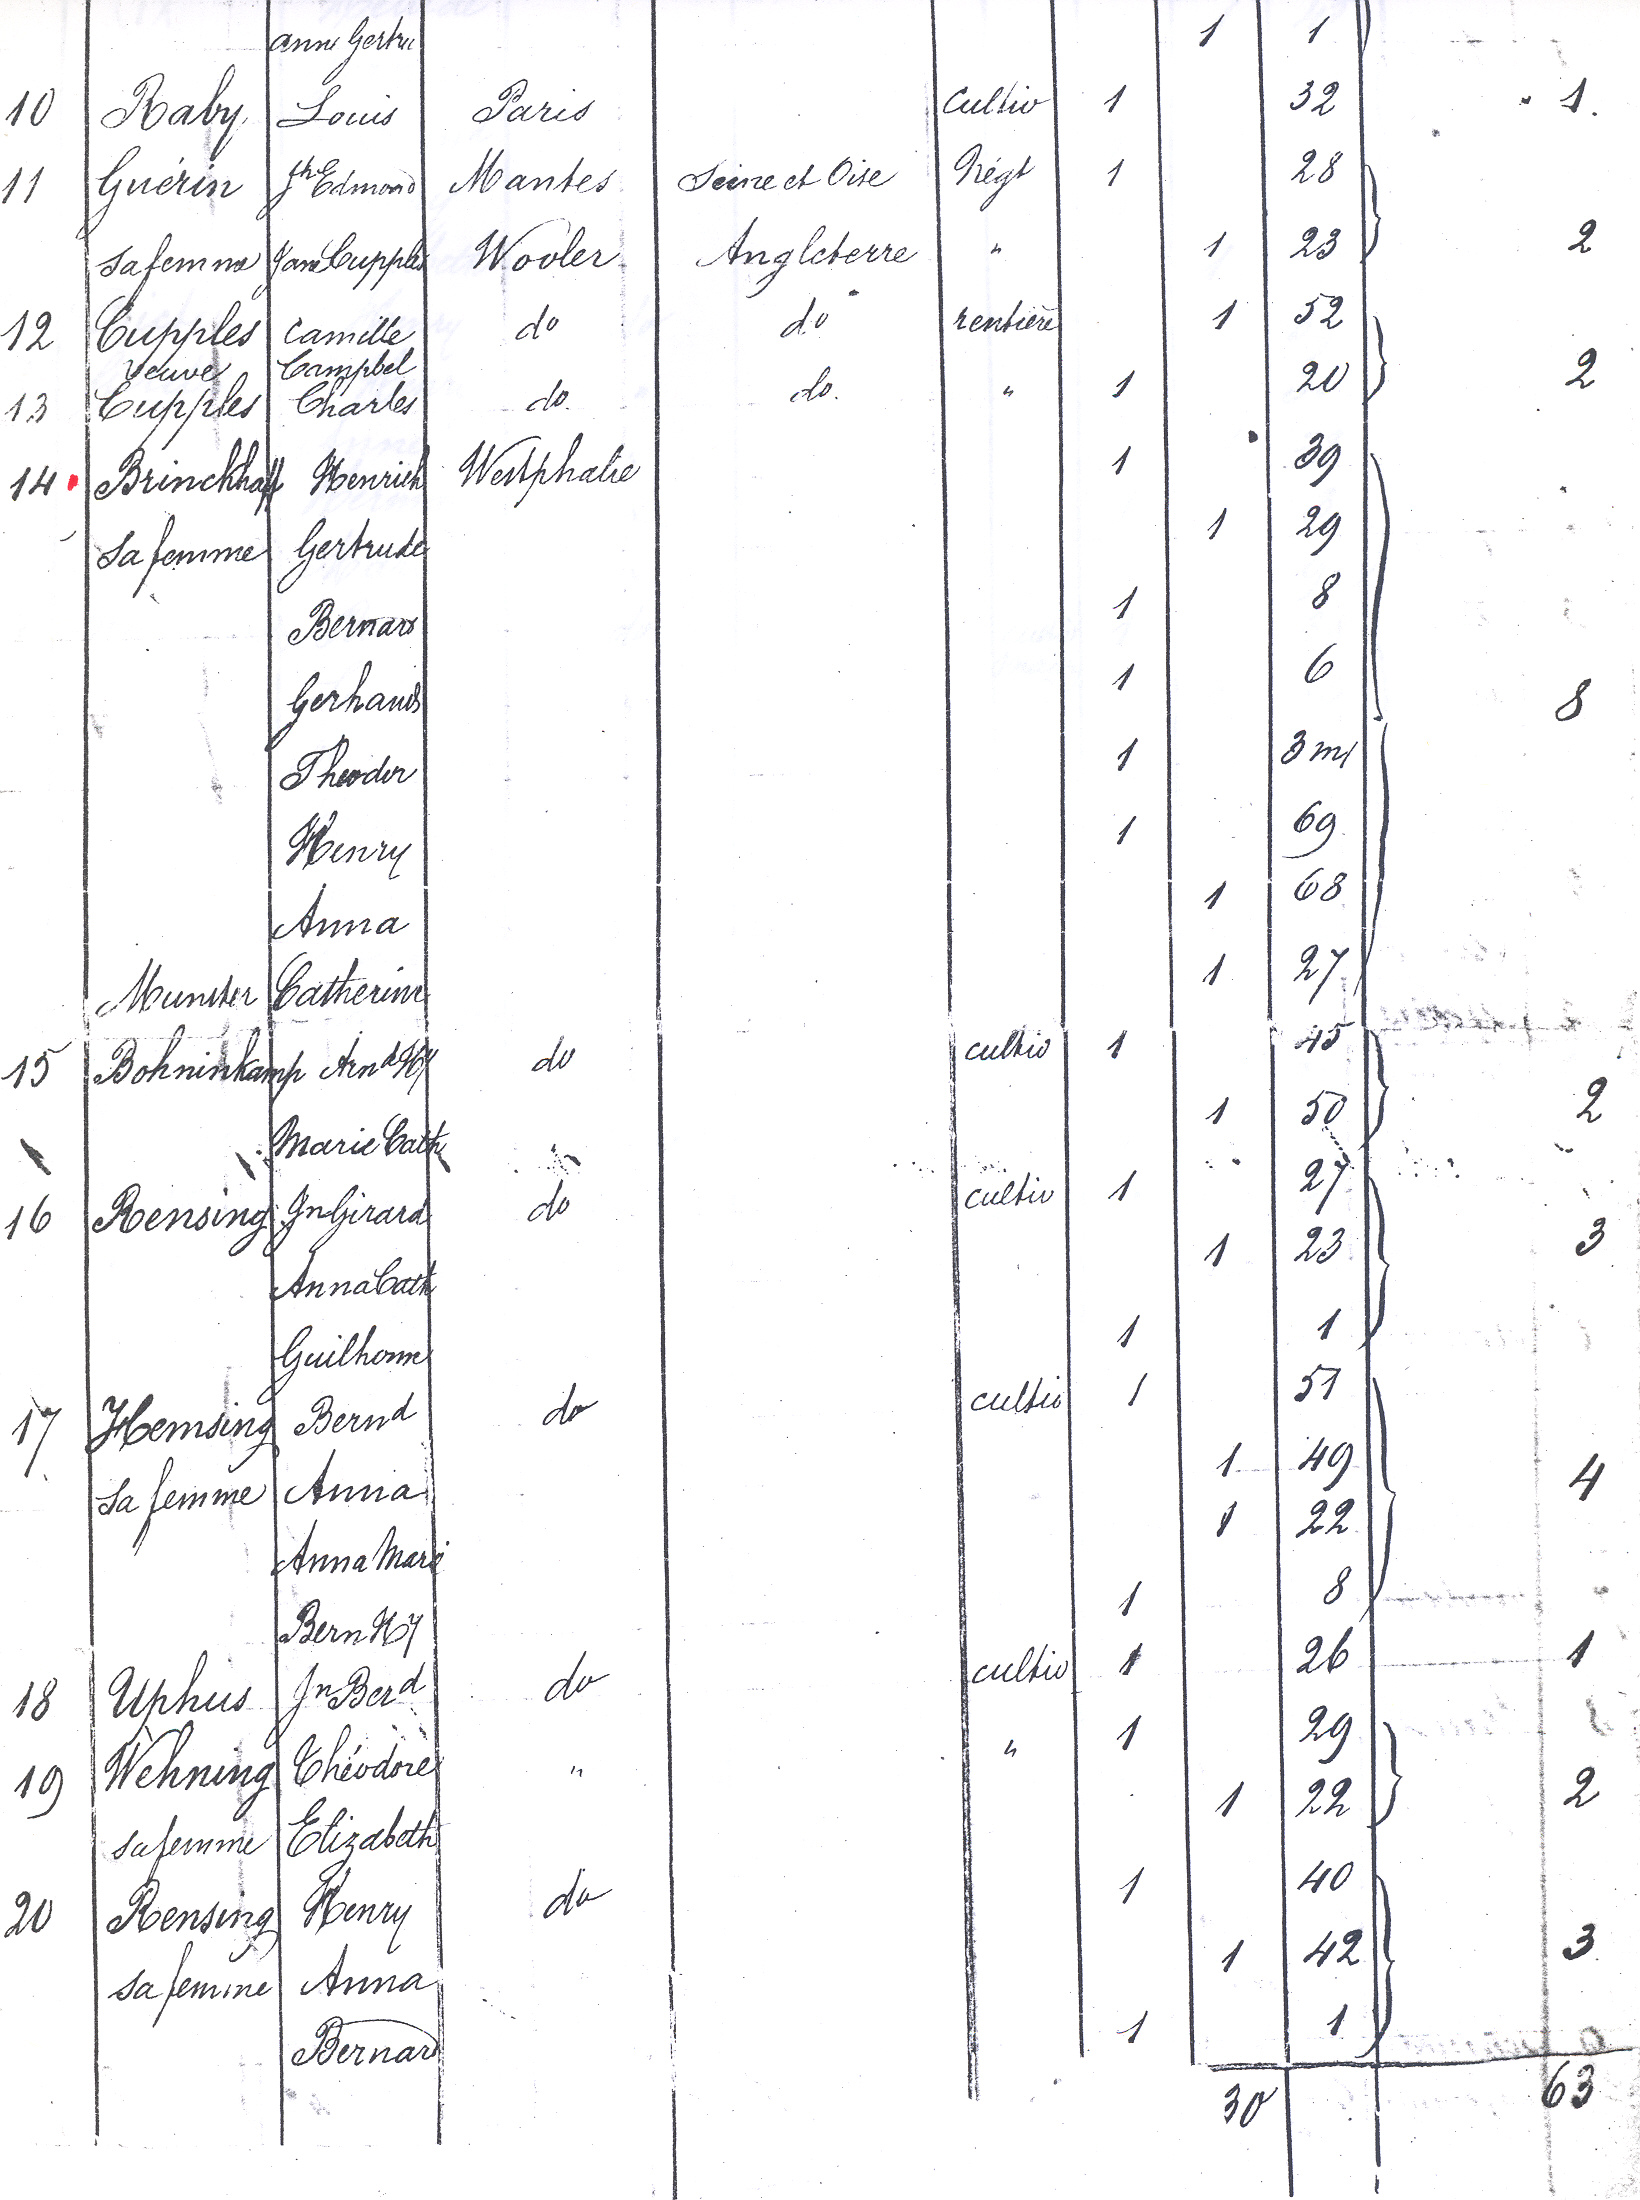 Anne Gertru 1 1
10 Raby Louis Paris Cultiv 1 32 1.
11 Guérin Jh Edmond Mantes Seine et Oise Négt 1 28
sa femme Jane Cupples Wooler Angleterre " 1 23 2
12 Cupples Camille do do rentière 1 52
Veuve Campbel
13 Cupples Charles do. do. " 1 20 2
14 Brinckhoff Henrich Westphalie 1 39
sa femme Gertrude 1 29
Bernard 1 8
Gerhard 1 6 8
Theodor 1 3 m
Henry 1 69
Anna 1 68
Munster Catherine 1 27
15 Bohninkamp Arnd Hy do cultiv 1 45
Marie Cath 1 50 2
16 Rensing Jn Girard do cultiv 1 27
Anna Cath 1 23 3
Guilhome 1 1
17 Hemsing Bernd do cultiv 1 51
sa femme Anna 1 49 4
Anna Mari 1 22
Bern Hy 1 8
18 Uphus Jn Berd do cultiv 1 26 1
19 Wehning Théodore " " 1 29
sa femme Elizabeth 1 22 2
20 Rensing Henry do 1 40
sa femme Anna 1 42 3
Bernard 1 1
30 63